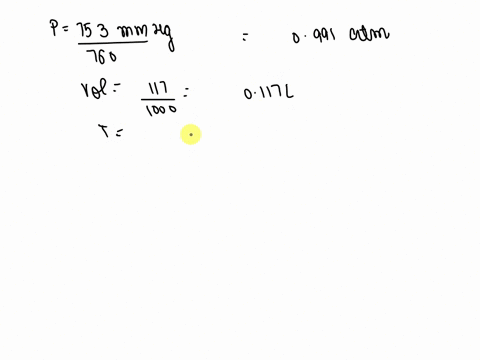 P = 753 mm Hg / 760 = 0.991 atm
Vol = 117 / 1000 = 0.117L
T =